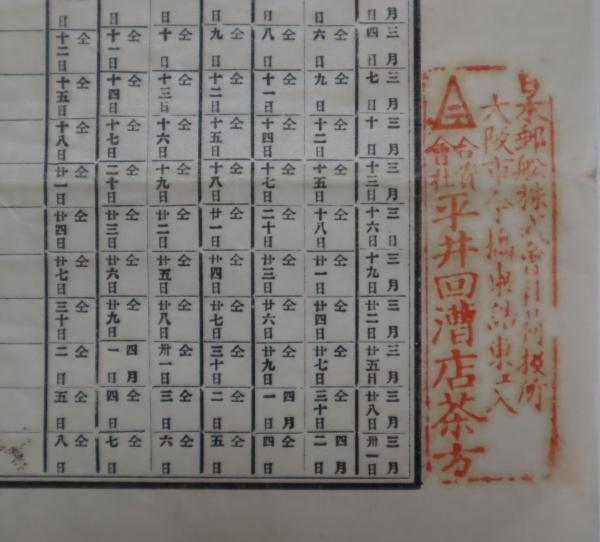 日本郵船株式會社荷扱所
大阪市今橋東詰東エ入
三
合資會社平井回漕店茶方
月日 日 日 日 日 日 日
三月四日 仝六日 仝八日 仝九日 仝十日 仝十一日 仝十二日
三月七日 仝九日 仝十一日 仝十二日 仝十三日 仝十四日 仝十五日
三月十日 仝十二日 仝十四日 仝十五日 仝十六日 仝十七日 仝十八日
三月十三日 仝十五日 仝十七日 仝十八日 仝十九日 仝二十日 仝廿一日
三日十六日 仝十八日 仝二十日 仝廿一日 仝廿二日 仝廿三日 仝廿四日
三月十九日 仝廿一日 仝廿三日 仝廿四日 仝廿五日 仝廿六日 仝廿七日
三月廿二日 仝廿四日 仝廿六日 仝廿七日 仝廿八日 仝廿九日 仝三十日
三月廿五日 仝廿七日 仝廿九日 仝三十日 仝卅一日 四月一日 仝二日
三月廿八日 仝三十日 四月一日 仝二日 仝三日 仝四日 仝五日
三月卅一日 四月二日 仝四日 仝五日 仝六日 仝七日 仝八日